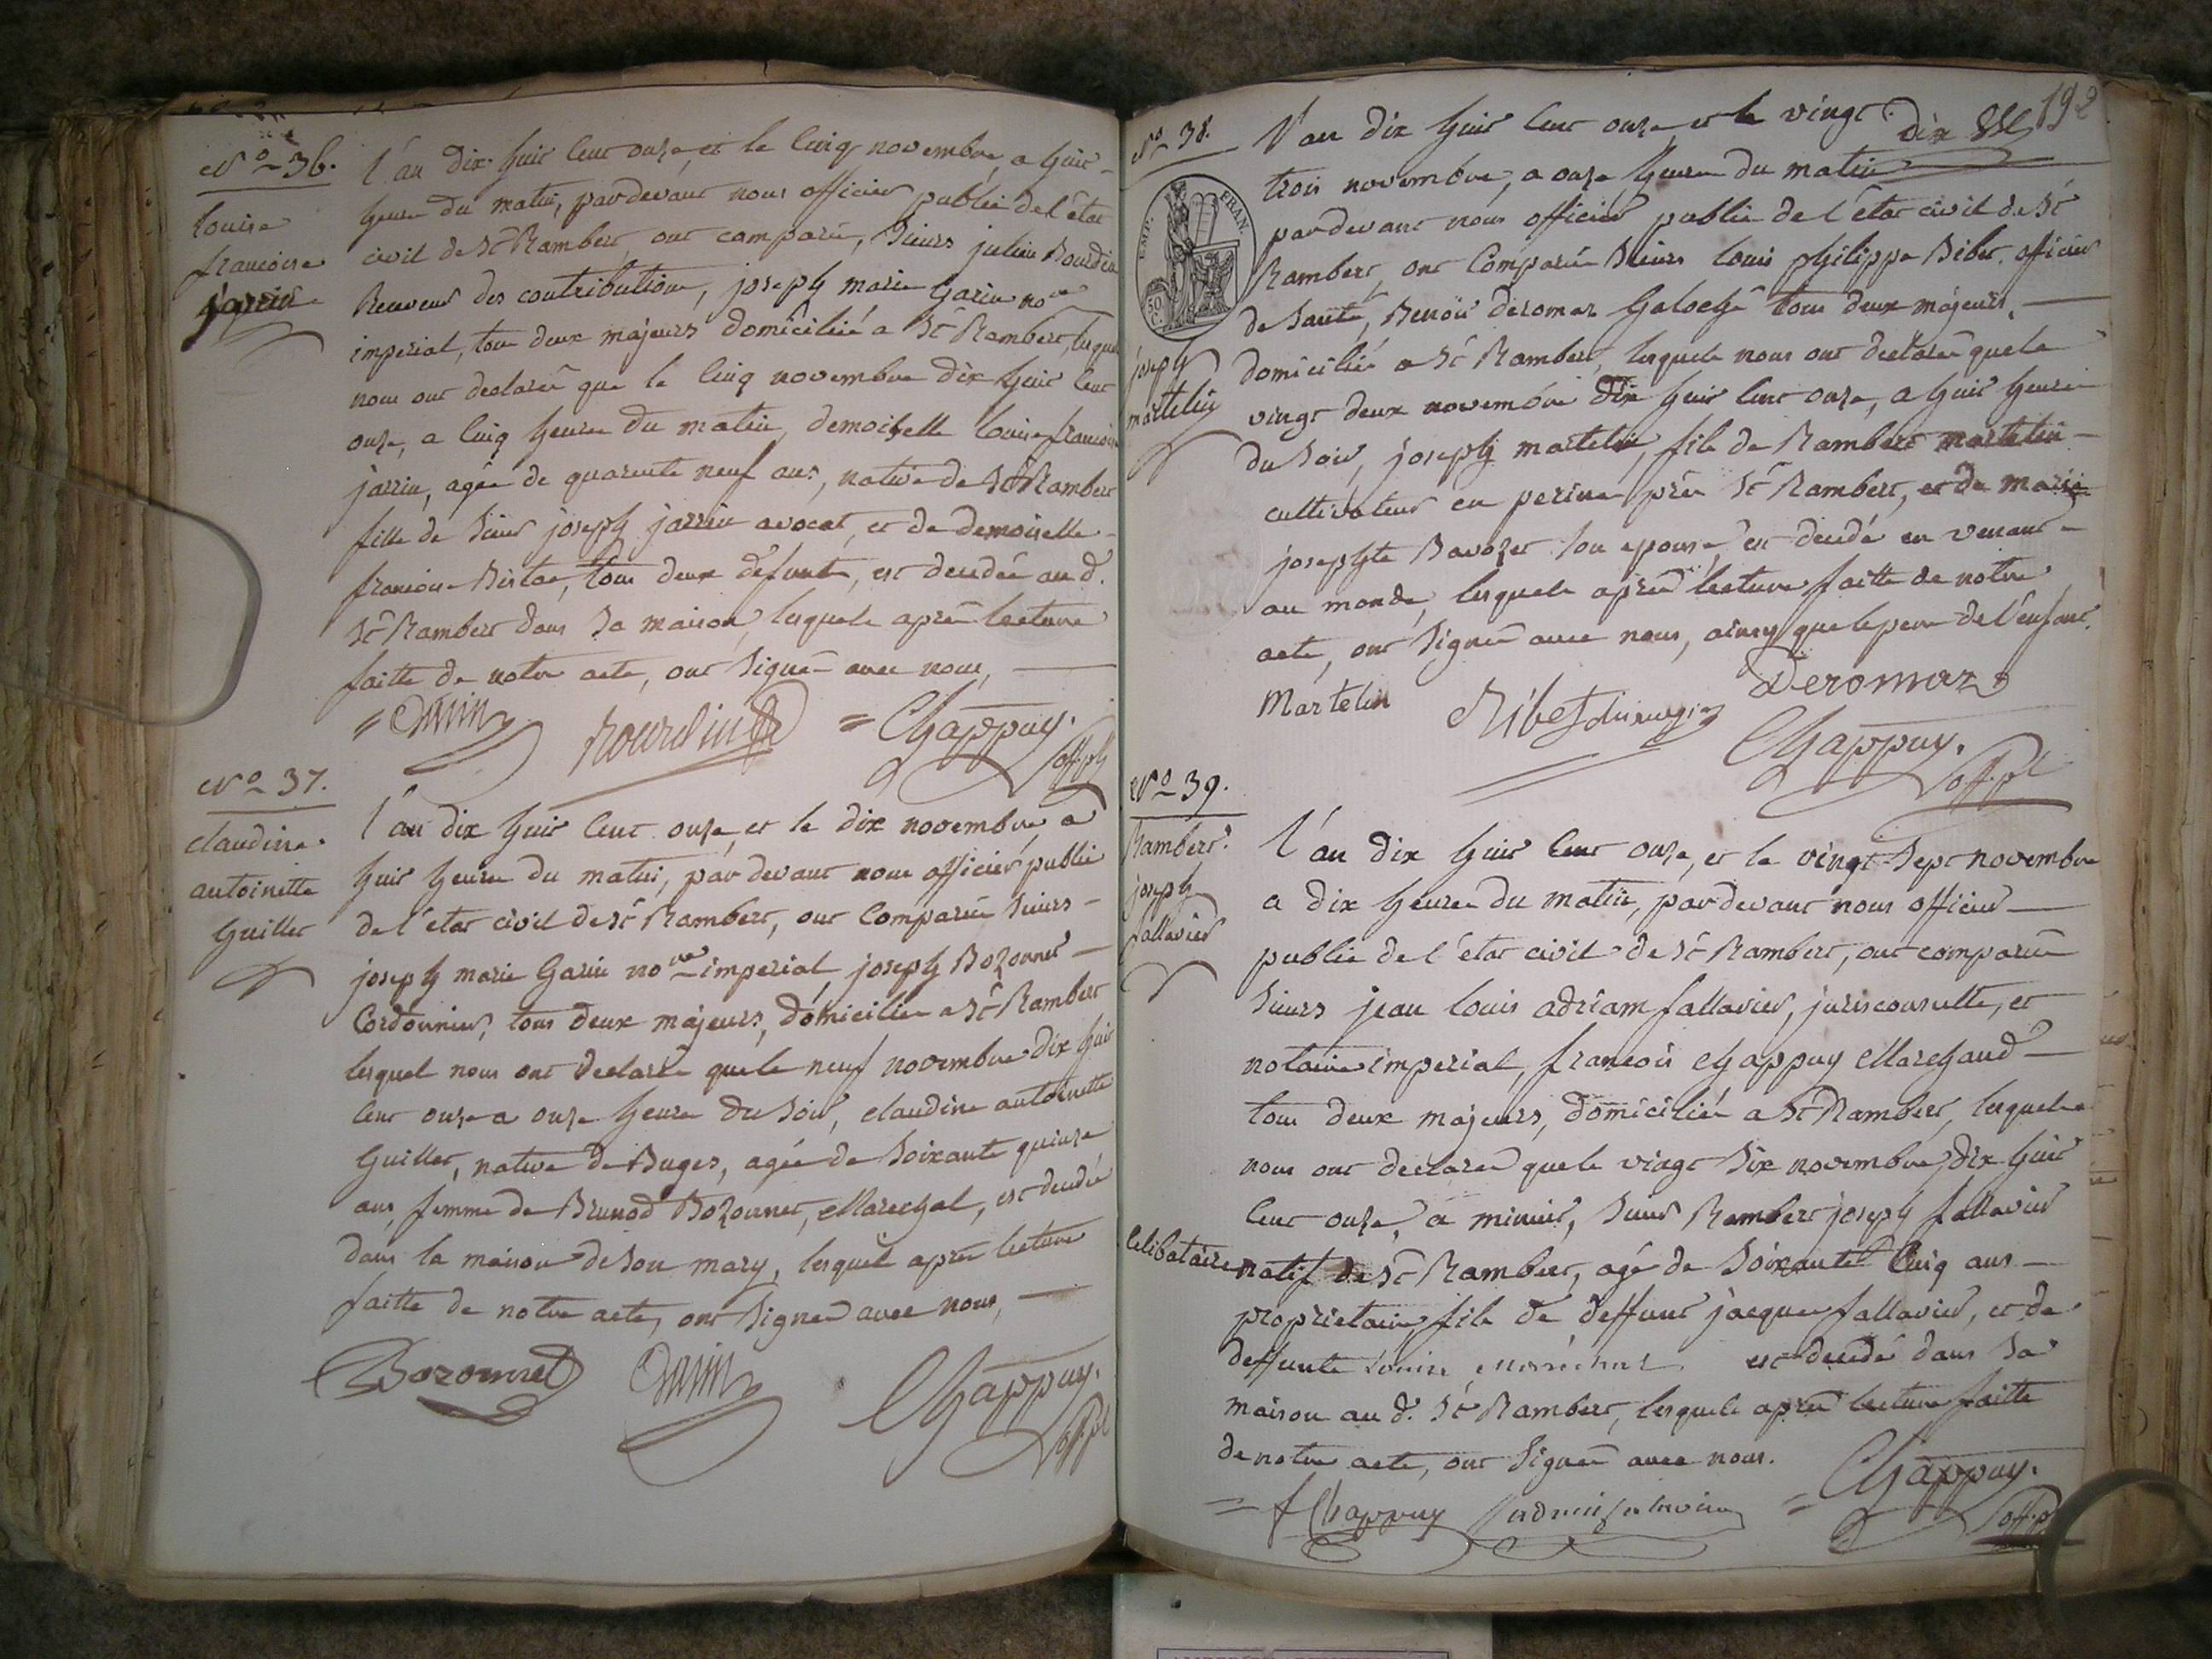 N.º 36.
Louise
francoise
jarrin
L'an dix huit cent onze, et le cinq novembre, a huit
heures du matin, pardevant nous officier public de l'état
civil de St Rambert, ont comparu, Sieurs julien Bourdin
Receveur des contributions, joseph marie Garin nore
imperial, tous deux majeurs domiciliés a St Rambert, lesquels
nous ont declaré que le cinq novembre dix huit cent
onze, a cinq heures du matin, demoiselle Louise francoise
jarrin, agée de quarente neuf ans, native de St Rambert
fille de Sieur joseph jarrin avocat, et de demoiselle
francoise tous deux défunts, est decedée au d.
St Rambert dans sa maison, lesquels après lecture
faitte de notre acte, ont signé avec nous,
= Garin Bourdin = Chappuy.
off. pl
N.º 37.
claudine
antoinette
Guillet
L'an dix huit cent onze, et le dix novembre, a
huit heures du matin, par devant nous officier public
de l'état civil de St Rambert, ont comparu Sieurs
joseph marie Garin nore imperial, joseph Bozonnet
Cordonnier, tous deux majeurs, domiciliés a St Rambert
lesquels nous ont declaré que le neuf novembre dix huit
cent onze a onze heures du soir, claudine antoinette
Guillet, native de Buges, agée de soixante quinze
ans, femme de Brunod Bozonnet, Marechal, est decedée
dans la maison de son mary, lesquels après lecture
faitte de notre acte, ont signé avec nous,
Bozonnet Garin Chappuy.
off. pl
192
N.º 38.
L'an dix huit cent onze, et le vingt dix
EMP. FRAN.
50 C.
trois novembre, a onze heures du matin
pardevant nous officier public de l'état civil de St
Rambert, ont comparu Sieurs Louis philippe Ribet officier
de Santé, Benoit deromas Galoché tous deux majeurs,
joseph
martelin
domiciliés a St Rambert, lesquels nous ont declaré que le
vingt deux novembre dix huit cent onze, a huit heures
du soir, joseph martelin, fils de Rambert martelin
cultivateur en perine près St Rambert, et de marie
josephte Bavozet son epouse, est decedé en venant
au monde, lesquels après lecture faitte de notre
acte, ont signé avec nous, ainsy que le pere de l'enfant.
Martelin Ribet chirurgien Deromaz
Chappuy.
off. pl
N.º 39.
Rambert
joseph
fallavier
L'an dix huit cent onze, et le vingt sept novembre
a dix heures du matin, pardevant nous officier
public de l'état civil de St Rambert, ont comparu
Sieurs jean louis adriam fallavier, jurisconsulte, et
notaire imperial, francois Chappuy Marchand
tous deux majeurs, domiciliés a St Rambert, lesquels
nous ont declaré que le vingt six novembre, dix huit
cent onze, a minuit, Sieur Rambert joseph fallavier
celibataire natif de St Rambert, agé de soixante cinq ans
proprietaire, fils de deffunt jacques fallavier, et de
deffunte Louise Maréchal est decedé dans sa
maison au d. St Rambert, lesquels après lecture faitte
de notre acte, ont signé avec nous.
= f Chappuy = Chappuy.
off. pl